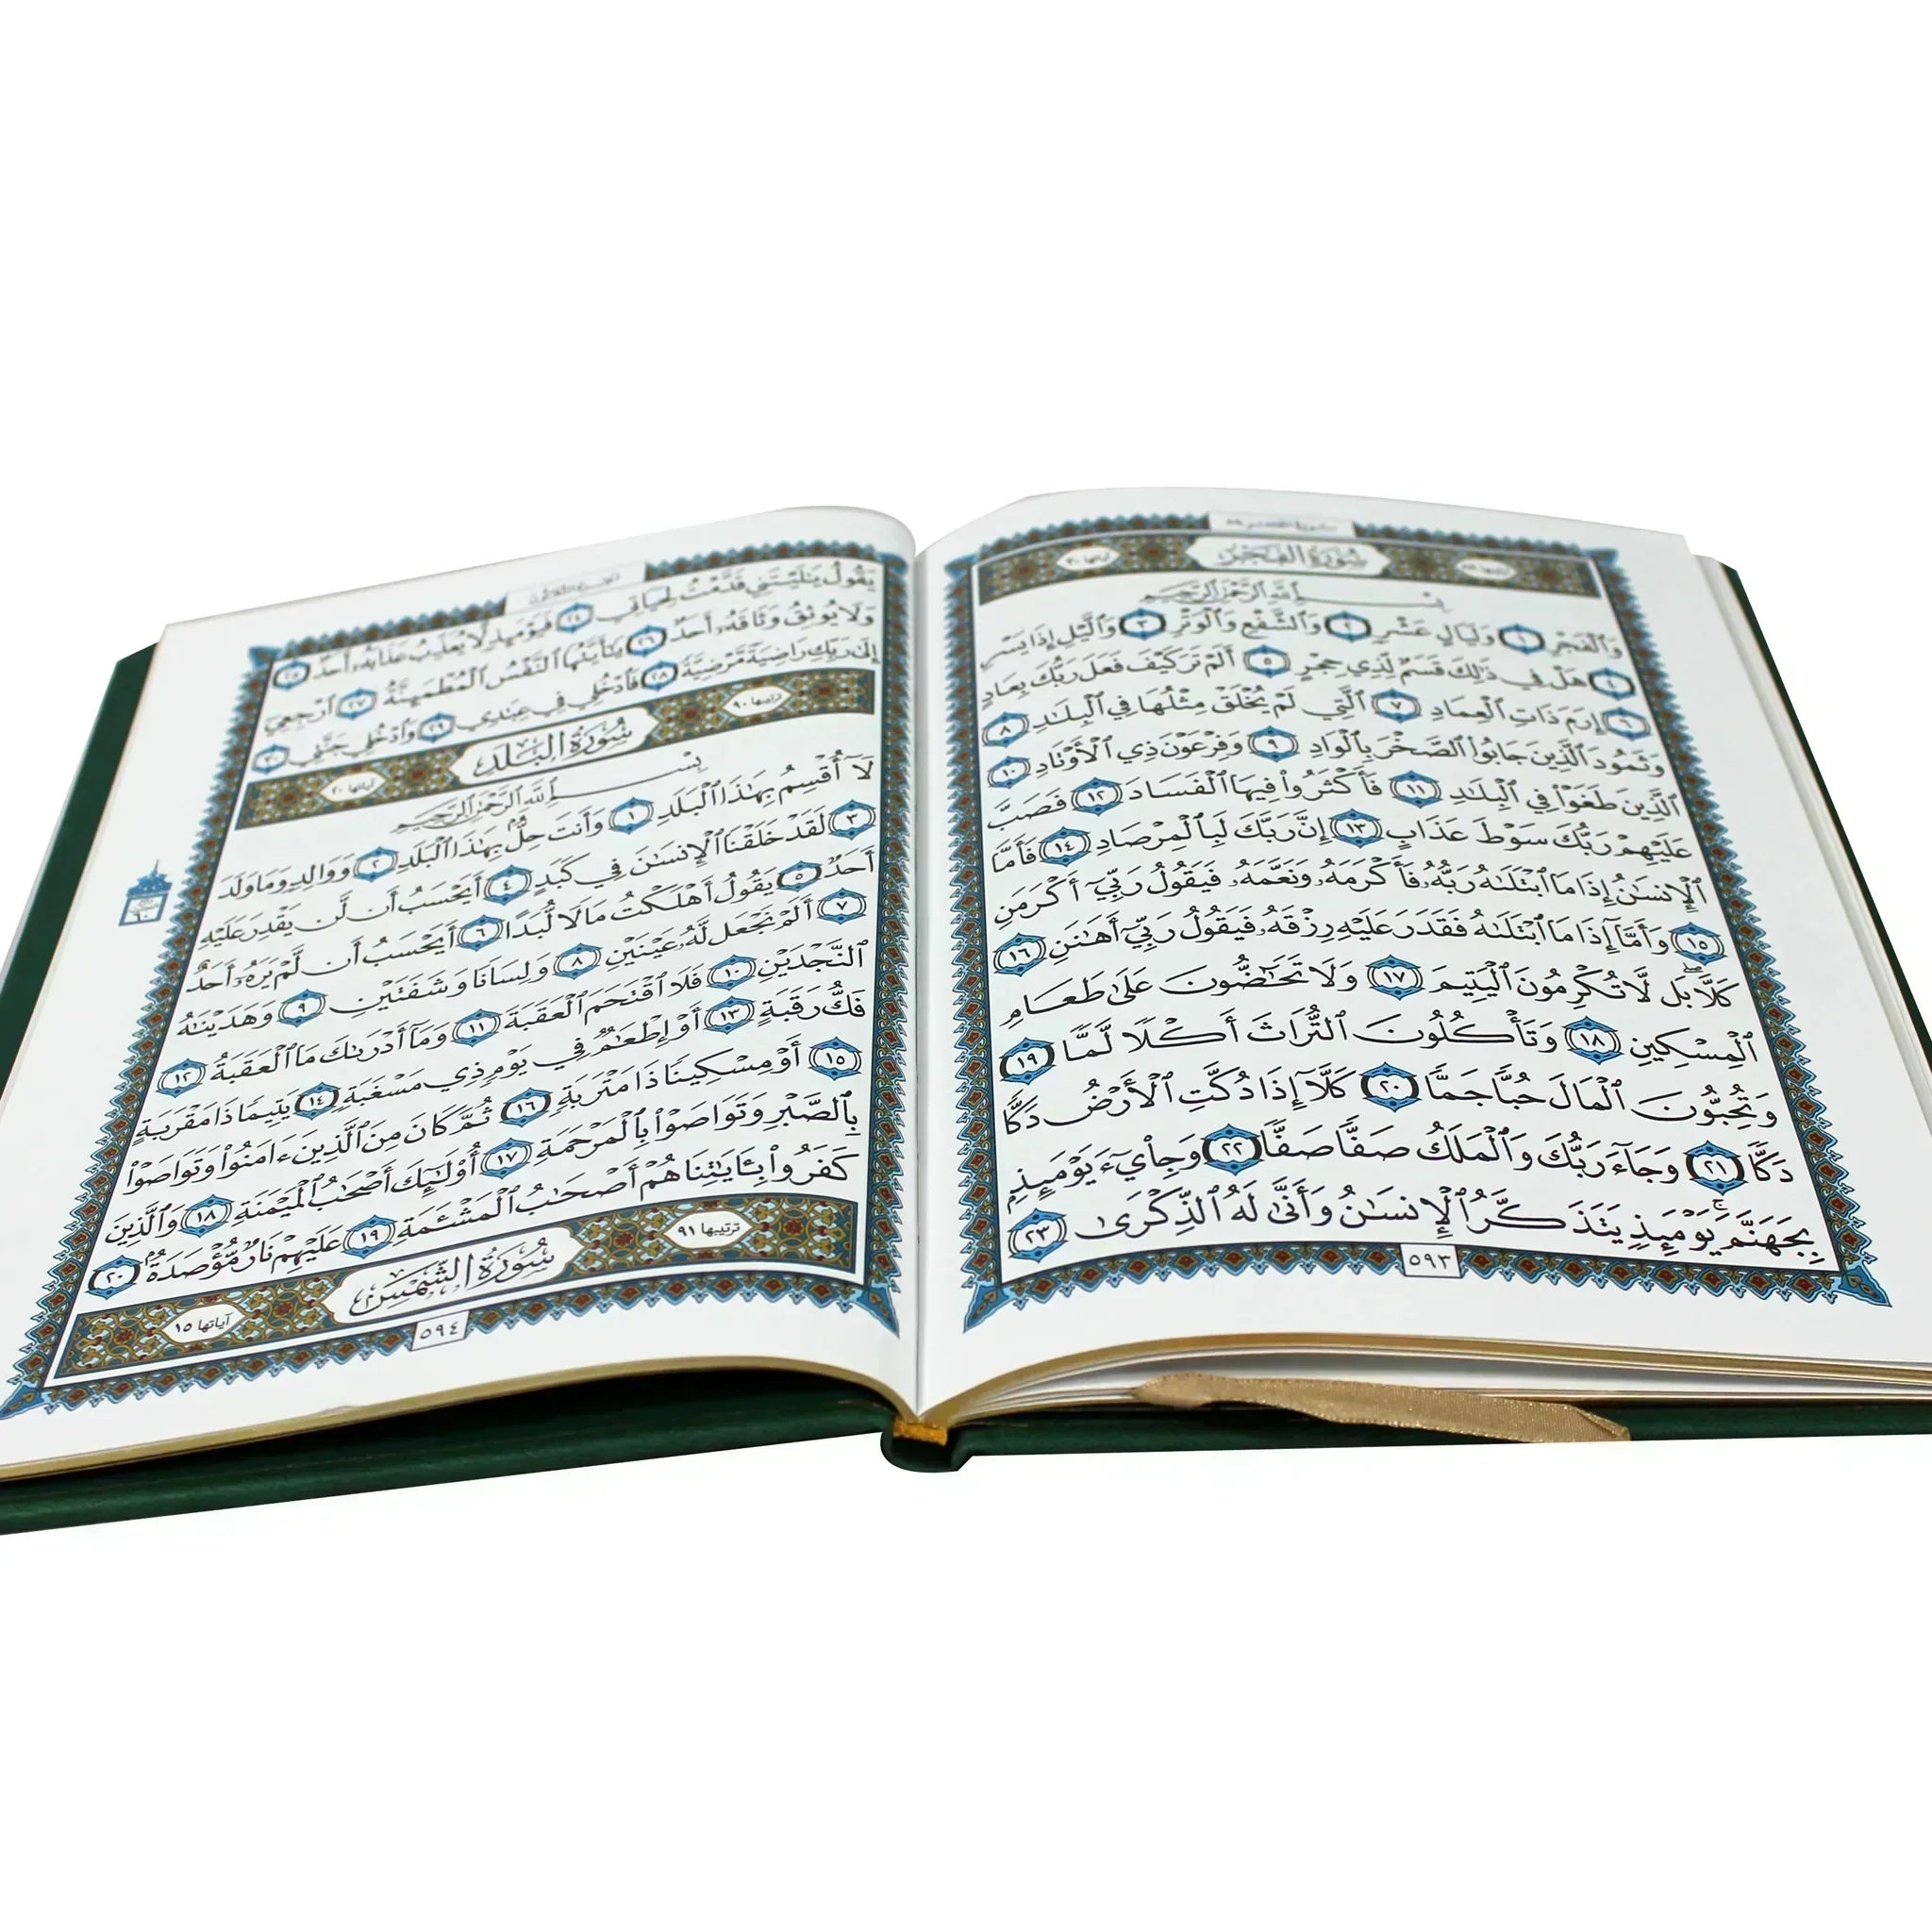 سورة الفجر ٨٩
ترتيبها ٨٩ سُورَةُ الفَجْرِ آياتها ٣٠
بِسْمِ ٱللَّهِ ٱلرَّحْمَٰنِ ٱلرَّحِيمِ
وَٱلْفَجْرِ ١ وَلَيَالٍ عَشْرٍ ٢ وَٱلشَّفْعِ وَٱلْوَتْرِ ٣ وَٱلَّيْلِ إِذَا يَسْرِ
٤ هَلْ فِي ذَٰلِكَ قَسَمٌ لِّذِي حِجْرٍ ٥ أَلَمْ تَرَ كَيْفَ فَعَلَ رَبُّكَ بِعَادٍ
٦ إِرَمَ ذَاتِ ٱلْعِمَادِ ٧ ٱلَّتِي لَمْ يُخْلَقْ مِثْلُهَا فِي ٱلْبِلَٰدِ ٨
وَثَمُودَ ٱلَّذِينَ جَابُوا۟ ٱلصَّخْرَ بِٱلْوَادِ ٩ وَفِرْعَوْنَ ذِي ٱلْأَوْتَادِ ١٠
ٱلَّذِينَ طَغَوْا۟ فِي ٱلْبِلَٰدِ ١١ فَأَكْثَرُوا۟ فِيهَا ٱلْفَسَادَ ١٢ فَصَبَّ
عَلَيْهِمْ رَبُّكَ سَوْطَ عَذَابٍ ١٣ إِنَّ رَبَّكَ لَبِٱلْمِرْصَادِ ١٤ فَأَمَّا
ٱلْإِنسَٰنُ إِذَا مَا ٱبْتَلَىٰهُ رَبُّهُۥ فَأَكْرَمَهُۥ وَنَعَّمَهُۥ فَيَقُولُ رَبِّيٓ أَكْرَمَنِ
١٥ وَأَمَّآ إِذَا مَا ٱبْتَلَىٰهُ فَقَدَرَ عَلَيْهِ رِزْقَهُۥ فَيَقُولُ رَبِّيٓ أَهَٰنَنِ ١٦
كَلَّا ۖ بَل لَّا تُكْرِمُونَ ٱلْيَتِيمَ ١٧ وَلَا تَحَٰٓضُّونَ عَلَىٰ طَعَامِ
ٱلْمِسْكِينِ ١٨ وَتَأْكُلُونَ ٱلتُّرَاثَ أَكْلًا لَّمًّا ١٩
وَتُحِبُّونَ ٱلْمَالَ حُبًّا جَمًّا ٢٠ كَلَّآ إِذَا دُكَّتِ ٱلْأَرْضُ دَكًّا
دَكًّا ٢١ وَجَآءَ رَبُّكَ وَٱلْمَلَكُ صَفًّا صَفًّا ٢٢ وَجِا۟يٓءَ يَوْمَئِذٍۭ
بِجَهَنَّمَ ۚ يَوْمَئِذٍ يَتَذَكَّرُ ٱلْإِنسَٰنُ وَأَنَّىٰ لَهُ ٱلذِّكْرَىٰ ٢٣
٥٩٣
يَقُولُ يَٰلَيْتَنِي قَدَّمْتُ لِحَيَاتِي ٢٤ فَيَوْمَئِذٍ لَّا يُعَذِّبُ عَذَابَهُۥٓ أَحَدٌ ٢٥
وَلَا يُوثِقُ وَثَاقَهُۥٓ أَحَدٌ ٢٦ يَٰٓأَيَّتُهَا ٱلنَّفْسُ ٱلْمُطْمَئِنَّةُ ٢٧ ٱرْجِعِيٓ
إِلَىٰ رَبِّكِ رَاضِيَةً مَّرْضِيَّةً ٢٨ فَٱدْخُلِي فِي عِبَٰدِي ٢٩ وَٱدْخُلِي جَنَّتِي ٣٠
ترتيبها ٩٠ سُورَةُ البَلَدِ آياتها ٢٠
بِسْمِ ٱللَّهِ ٱلرَّحْمَٰنِ ٱلرَّحِيمِ
لَآ أُقْسِمُ بِهَٰذَا ٱلْبَلَدِ ١ وَأَنتَ حِلٌّۢ بِهَٰذَا ٱلْبَلَدِ ٢ وَوَالِدٍ وَمَا وَلَدَ
٣ لَقَدْ خَلَقْنَا ٱلْإِنسَٰنَ فِي كَبَدٍ ٤ أَيَحْسَبُ أَن لَّن يَقْدِرَ عَلَيْهِ
أَحَدٌ ٥ يَقُولُ أَهْلَكْتُ مَالًا لُّبَدًا ٦ أَيَحْسَبُ أَن لَّمْ يَرَهُۥٓ أَحَدٌ
٧ أَلَمْ نَجْعَل لَّهُۥ عَيْنَيْنِ ٨ وَلِسَانًا وَشَفَتَيْنِ ٩ وَهَدَيْنَٰهُ
ٱلنَّجْدَيْنِ ١٠ فَلَا ٱقْتَحَمَ ٱلْعَقَبَةَ ١١ وَمَآ أَدْرَىٰكَ مَا ٱلْعَقَبَةُ ١٢
فَكُّ رَقَبَةٍ ١٣ أَوْ إِطْعَٰمٌ فِي يَوْمٍ ذِي مَسْغَبَةٍ ١٤ يَتِيمًا ذَا مَقْرَبَةٍ
١٥ أَوْ مِسْكِينًا ذَا مَتْرَبَةٍ ١٦ ثُمَّ كَانَ مِنَ ٱلَّذِينَ ءَامَنُوا۟ وَتَوَاصَوْا۟
بِٱلصَّبْرِ وَتَوَاصَوْا۟ بِٱلْمَرْحَمَةِ ١٧ أُو۟لَٰٓئِكَ أَصْحَٰبُ ٱلْمَيْمَنَةِ ١٨ وَٱلَّذِينَ
كَفَرُوا۟ بِـَٔايَٰتِنَا هُمْ أَصْحَٰبُ ٱلْمَشْـَٔمَةِ ١٩ عَلَيْهِمْ نَارٌ مُّؤْصَدَةٌۢ ٢٠
ترتيبها ٩١ سُورَةُ الشَّمْسِ آياتها ١٥
٥٩٤
٦٠